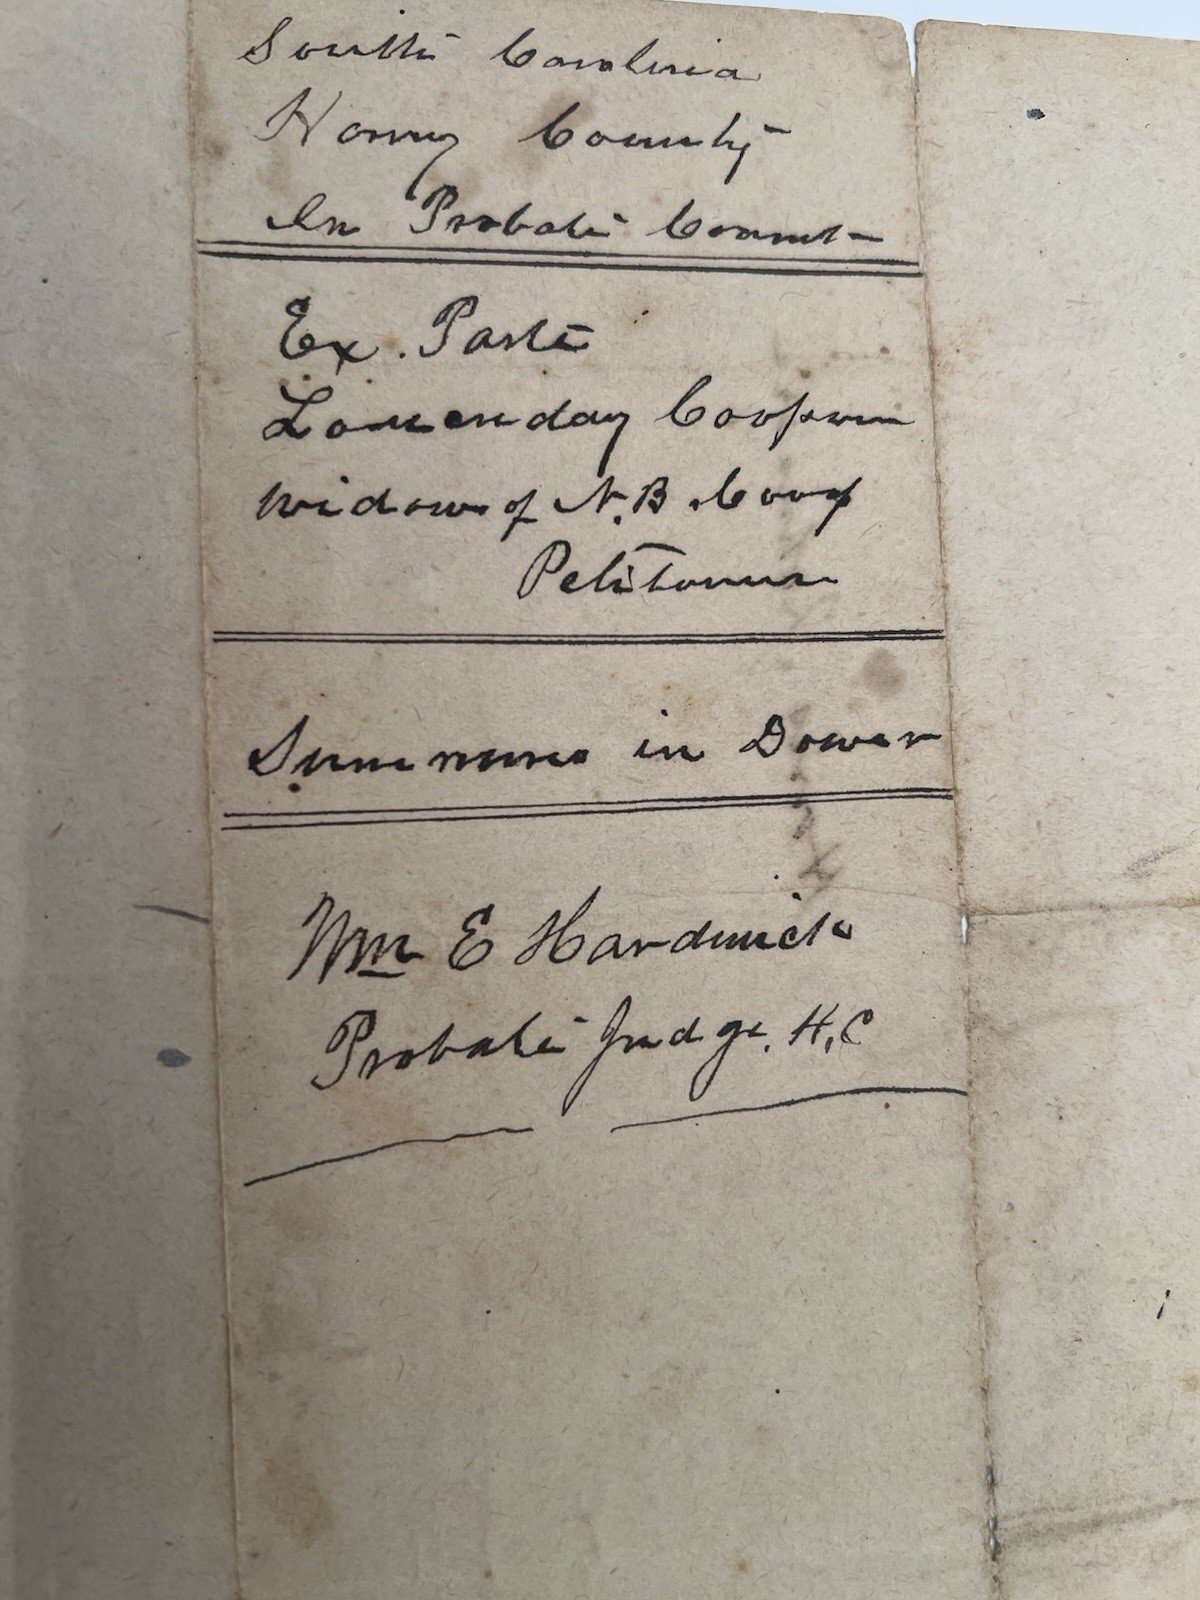 South Carolina
Horry County
In Probate Court
Ex. Parte
Louenday Cooper
widow of N. B. Coop
Petitioner
Summons in Dower
Wm E Hardwick
Probate Judge. H. C